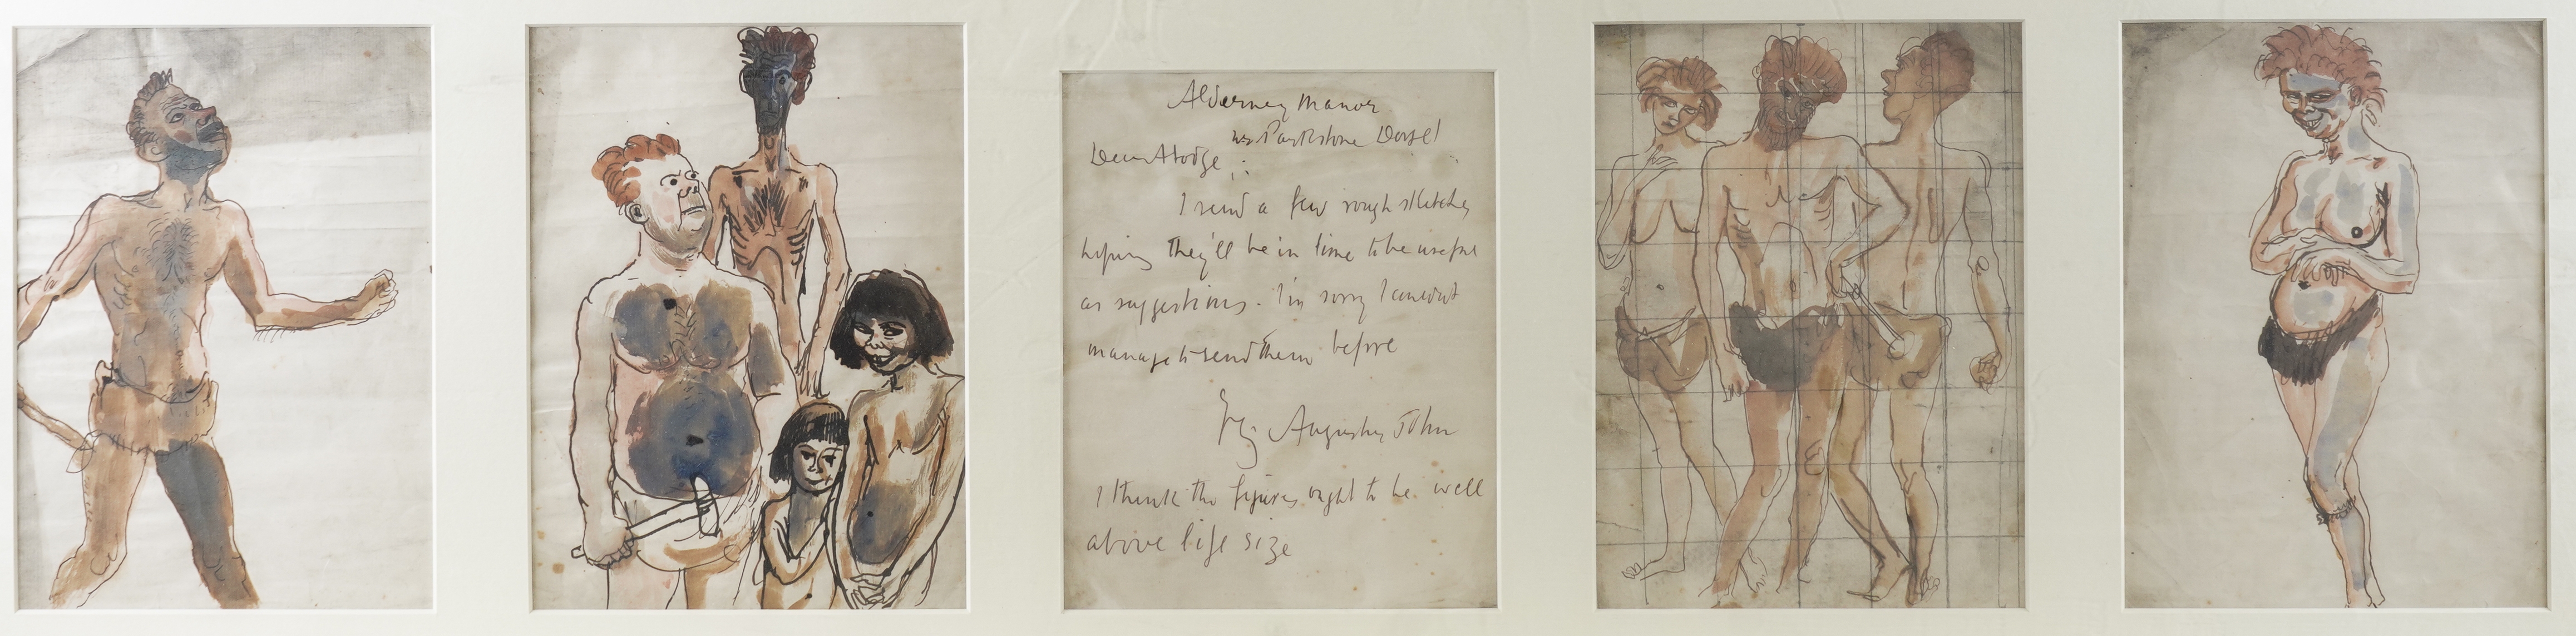 Alderney Manor
nr Parkstone Dorset
Dear Hodge
I send a few rough sketches
hoping they'll be in time to be useful
as suggestions. I'm sorry I couldn't
manage to send them before
Augustus John
I think the figures ought to be well
above life size